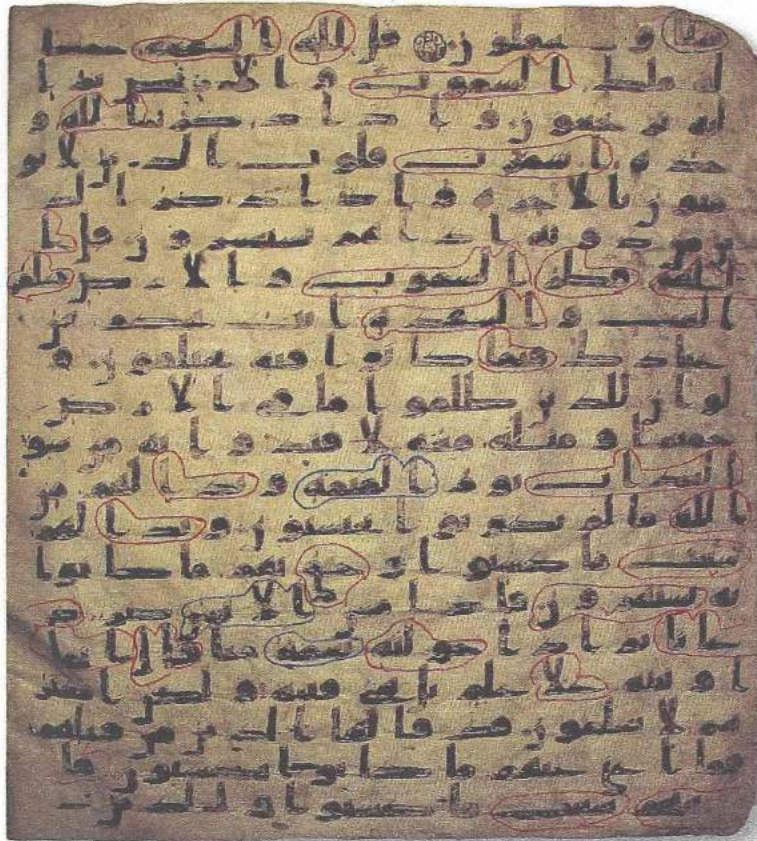 شيا و لا يعقلون قل لله الشفعة جميعا
له ملك السموت والارض ثم ا
ليه ترجعون واذا ذكر الله و
حده اشمزت قلوب الذين لا يو
منون بالاخرة واذا ذكر الذ
ين من دونه اذا هم يستبشرون قل ا
للهم فطر السموت والارض علم
الغيب والشهدة انت تحكم بين
عبادك فيما كانوا فيه يختلفون و
لو ان للذين ظلموا ما في الارض
جميعا ومثله معه لافتدوا به من سو
العذاب يوم القيمة وبدا لهم من
الله ما لم يكونوا يحتسبون وبدا لهم
سيت ما كسبوا وحق بهم ما كانوا
به يستهزون فاذا مس الانسن ضر د
عانا ثم اذا خولنه نعمة منا قال انما
اوتيته علا علم بل هي فتنة ولكن اكثر
هم لا يعلمون قد قالها الذين من قبلهم
فما اغنى عنهم ما كانوا يكسبون فا
صبهم سيت ما كسبوا والذين